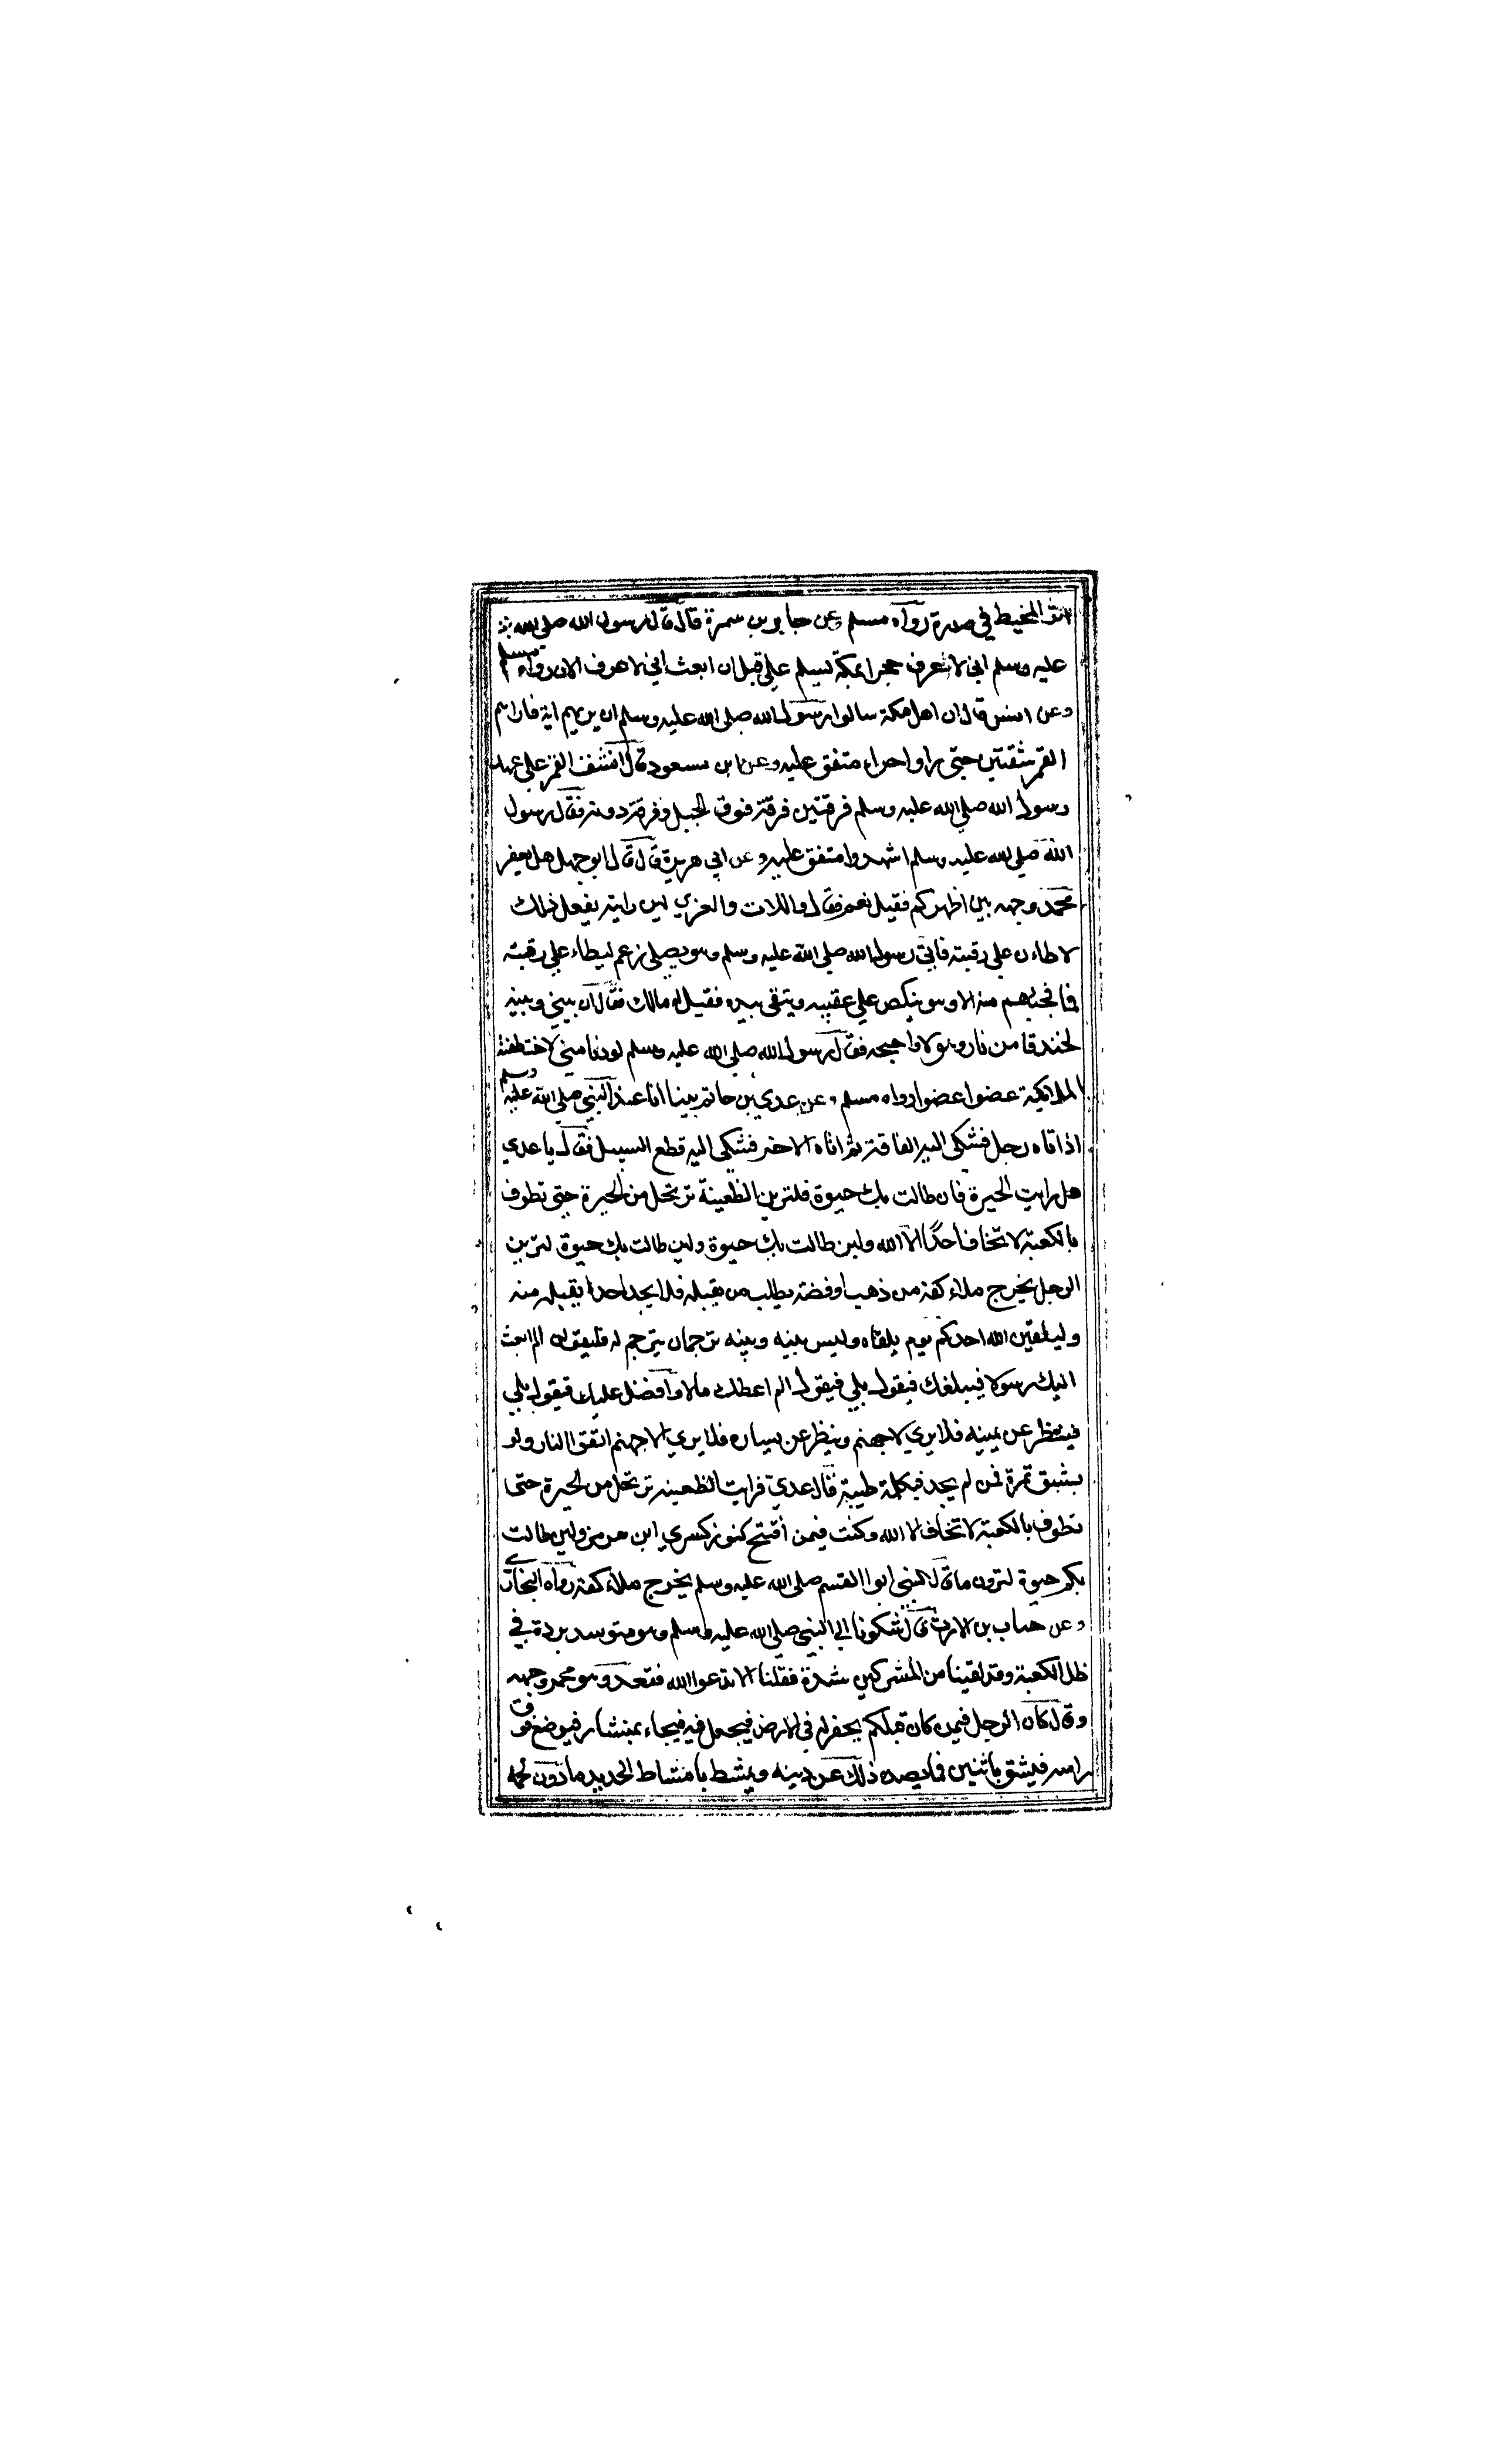 اثر المخيط في صدره رواه مسلم وعن جابر بن سمرة قال قال رسول الله صلى الله
عليه وسلم اني لاعرف حجرا بمكة يسلم علي قبل ان ابعث اني لاعرف الان رواه مسلم
وعن انس قال ان اهل مكة سالوا رسول الله صلى الله عليه وسلم ان يريهم اية فاراهم
القمر شقتين حتى راوا حراء متفق عليه وعن ابن مسعود قال انشق القمر على عهد
رسول الله صلي الله عليه وسلم فرقتين فرقة فوق الجبل وفرقة دونه فقال رسول
الله صلي الله عليه وسلم اشهدوا متفق عليه وعن ابي هريرة قال قال ابو جهل هل يعفر
محمد وجهه بين اظهركم فقيل نعم فقال واللات والعزي لين رايته يفعل ذلك
لاطاءن علي رقبته فاتي رسول الله صلي الله عليه وسلم وهو يصلي زعم ليطاء علي رقبته
فما فجئهم منه الا وهو ينكص علي عقبيه ويتقي بيده فقيل له مالك فقال ان بيني وبينه
لخندقا من نار وهولا واجنحه فقال رسول الله صلي الله عليه وسلم لو دنا مني لاختطفته
الملائكية عضوا عضوا رواه مسلم وعن عدي بن حاتم بينا انا عند النبي صلي الله عليه وسلم
اذا تاه رجل فشكي اليه الفاقة ثم اتاه الاخر فشكي اليه قطع السبيل فقال يا عدي
هل رايت الحيرة فان طالت بك حيوة فلترين الظعينة ترتحل من الحيرة حتي تطوف
بالكعبة لا تخاف احدًا الا الله ولين طالت بك حيوة ولين طالت بك حيوة لترين
الرجل يخرج ملاء كفه من ذهب او فضة يطلب من يقبله فلا يجد احدا يقبله منه
وليلقين الله احدكم يوم يلقاه وليس بينه وبينه ترجمان يترجم له فليقولن الم ابعث
اليك رسولا فيبلغك فيقول بلي فيقول الم اعطك مالا وافضل عليك فيقول بلي
فينظر عن يمينه فلا يري الا جهنم وينظر عن يساره فلا يري الا جهنم اتقوا النار ولو
بشق تمرة فمن لم يجد فبكلمة طيبة قال عدي فرايت الظعينه ترتحل من الحيرة حتى
تطوف بالكعبة لا تخاف الا الله وكنت فيمن افتتح كنوز كسري ابن هرمز ولين طالت
بكم حيوة لترون ما قال النبي ابوا القسم صلي الله عليه وسلم يخرج ملاء كفه رواه البخاري
وعن خباب بن الارت قال شكونا الي النبي صلي الله عليه وسلم وهو متوسد بردة في
ظل الكعبة وقد لقينا من المشركين شدة فقلنا الا تدعوا الله فقعد وهو محمر وجهه
وقال كان الرجل فيمن كان قبلكم يحفر له في الارض فيجعل فيه فيجاء بمنشار فيوضع فوق
راسه فيشق باثنين فما يصده ذلك عن دينه ويمشط بامشاط الحديد ما دون لحمه